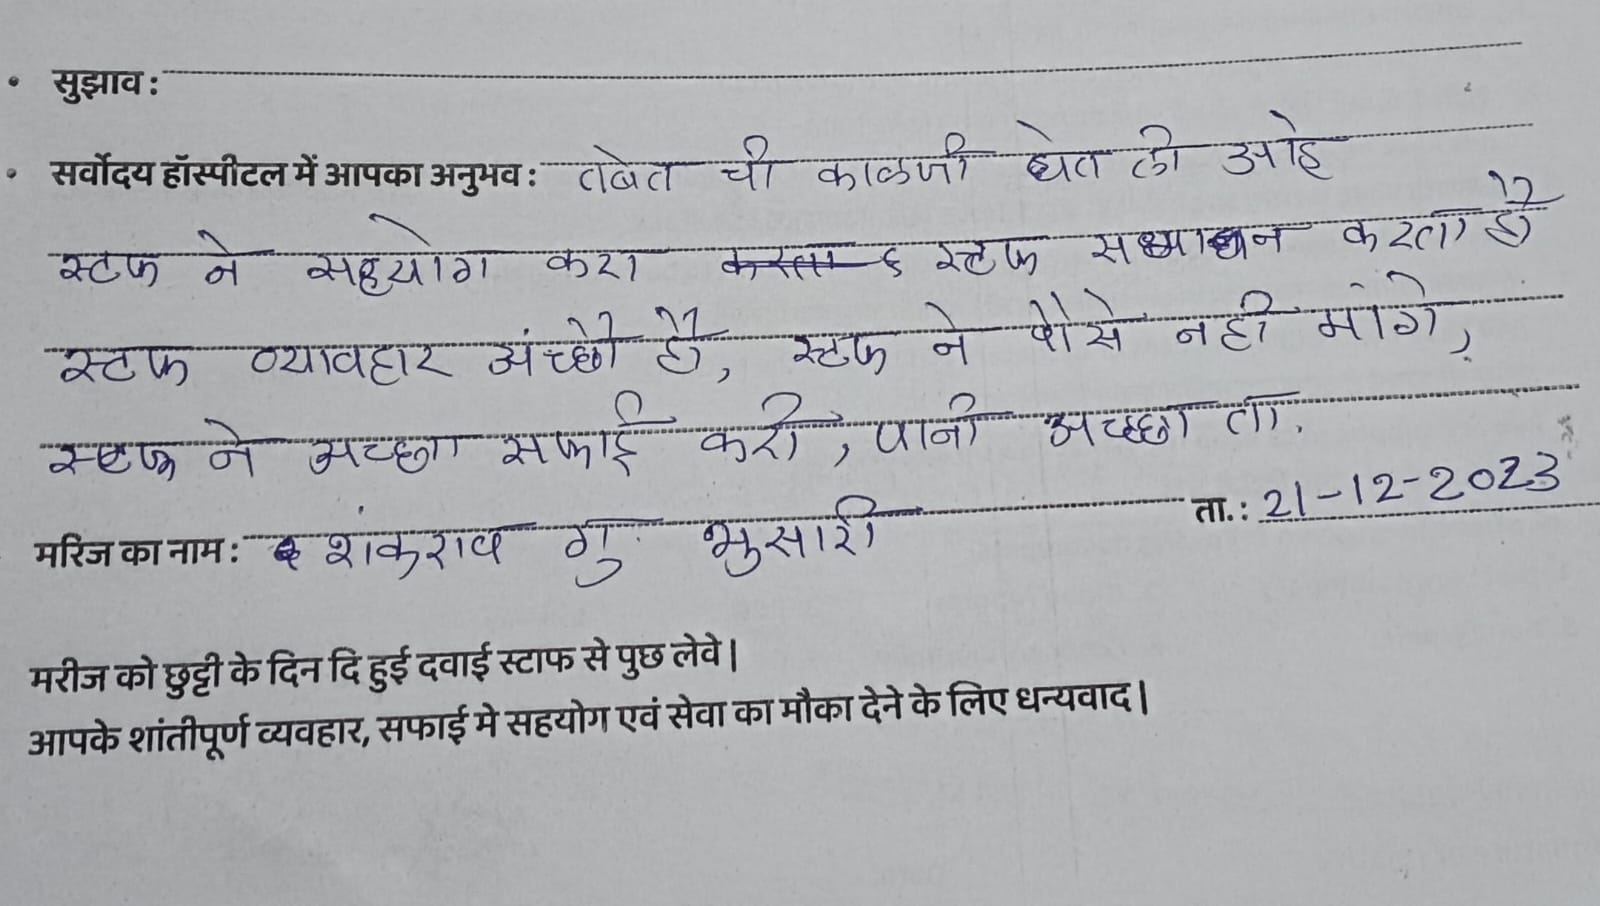 • सुझाव :
• सर्वोदय हॉस्पीटल में आपका अनुभव : तबेत ची काळजी घेत ली आहे
स्टाफ ने सहयोग करा स्टाफ करता है
स्टाफ व्यावहार अच्छा है, स्टाफ ने पैसे नही मांगे,
स्टाफ ने अच्छा सफाई करी, पानी अच्छा ता.
मरिज का नाम : शंकराव गु. भुसारी ता. : 21-12-2023
मरीज को छुट्टी के दिन दि हुई दवाई स्टाफ से पुछ लेवे |
आपके शांतीपूर्ण व्यवहार, सफाई मे सहयोग एवं सेवा का मौका देने के लिए धन्यवाद |